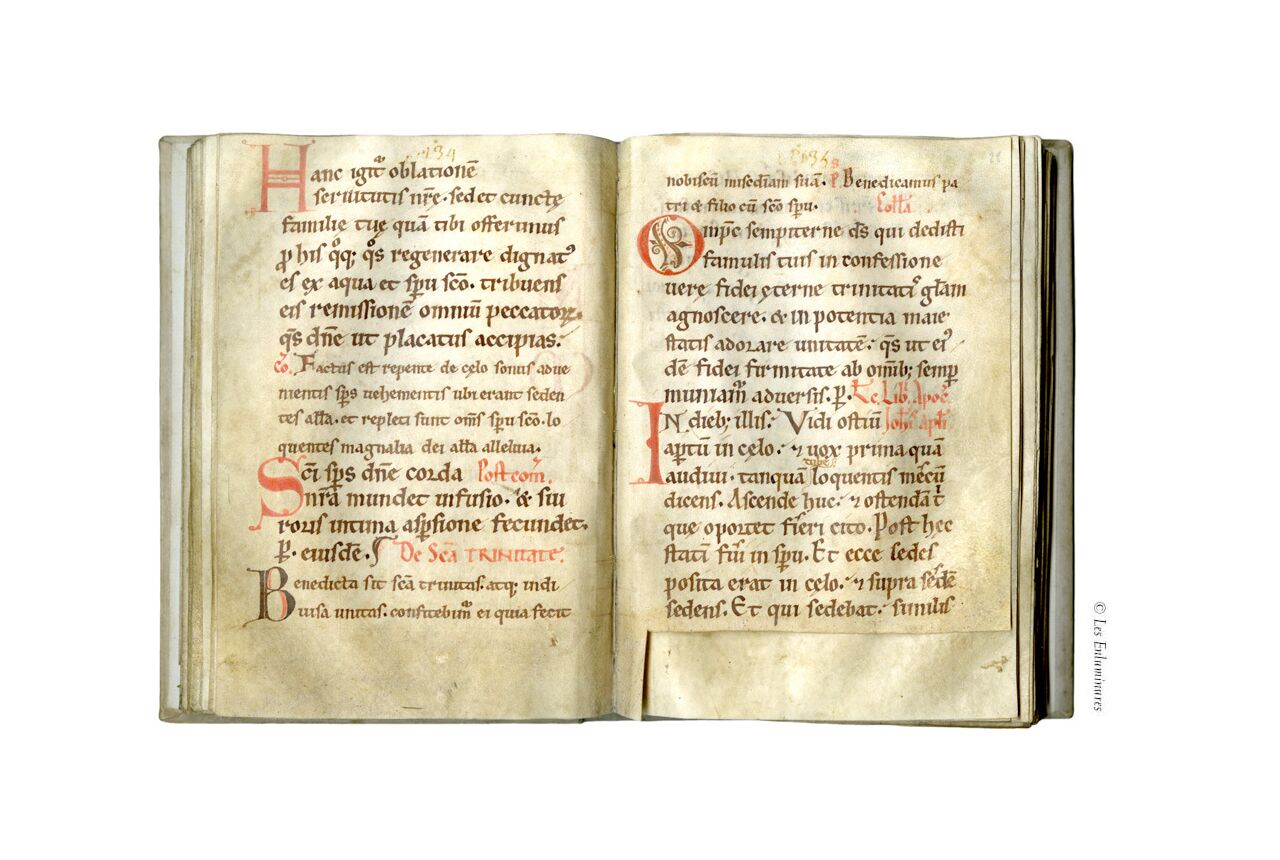 134
Hanc igit̄ oblationē
seruitutis nr̄e · sed et cunctę
familie tuę quā tibi offerimus
ꝓ his qͦqꝫ qs̄ regenerare dignatꝰ
es ex aqua et sp̄u sc̄o · tribuens
eis remissionē omniū peccatoꝝ ·
qs̄ dn̄e ut placatus accipias :
Co. Factus est repente de cęlo sonus adue
nientis sp̄s uehementis ubi erant seden
tes all̄a · et repleti sunt om̄s sp̄u sc̄o · lo
quentes magnalia dei all̄a alleluia ·
Sc̄i sp̄s dn̄e corda Postcom̄.
nr̄a mundet infusio · & sui
roris intima asp̄sione fecundet ·
P̱. eiusdē. De Sc̄a TRINITATE.
Benedicta sit sc̄a trinitas · atqꝫ indi
uisa unitas · confitebim̄ ei quia fecit
135
nobiscū misc̄diam suā · P̱. Benedicamus pa
tri & filio cū sc̄o sp̄u · Coll̄a
Omp̄c sempiterne ds̄ qui dedisti
famulis tuis in confessione
uerę fidei ęterne trinitatis gl̄am
agnoscere · & in potentia maie
statis adorare unitatē · qs̄ ut eiꝰ
dē fidei firmitate ab om̄ibꝫ semꝑ
muniam̄ aduersis · P̱. Lc̄. Lib̄. Apoc̄.
IN diebꝫ illis : Vidi ostiū Joh̄is Apl̄i
aꝑtū in cęlo : ⁊ uox prima quā
tubę
audiui · tanquā loquentis mecū
dicens · Ascende huc · ⁊ ostendā t̄
que oportet fieri cito · Post hec
statī fui in sp̄u · Et ecce sedes
posita erat in cęlo : ⁊ supra sedē
sedens · Et qui sedebat : similis
© Les Enluminures